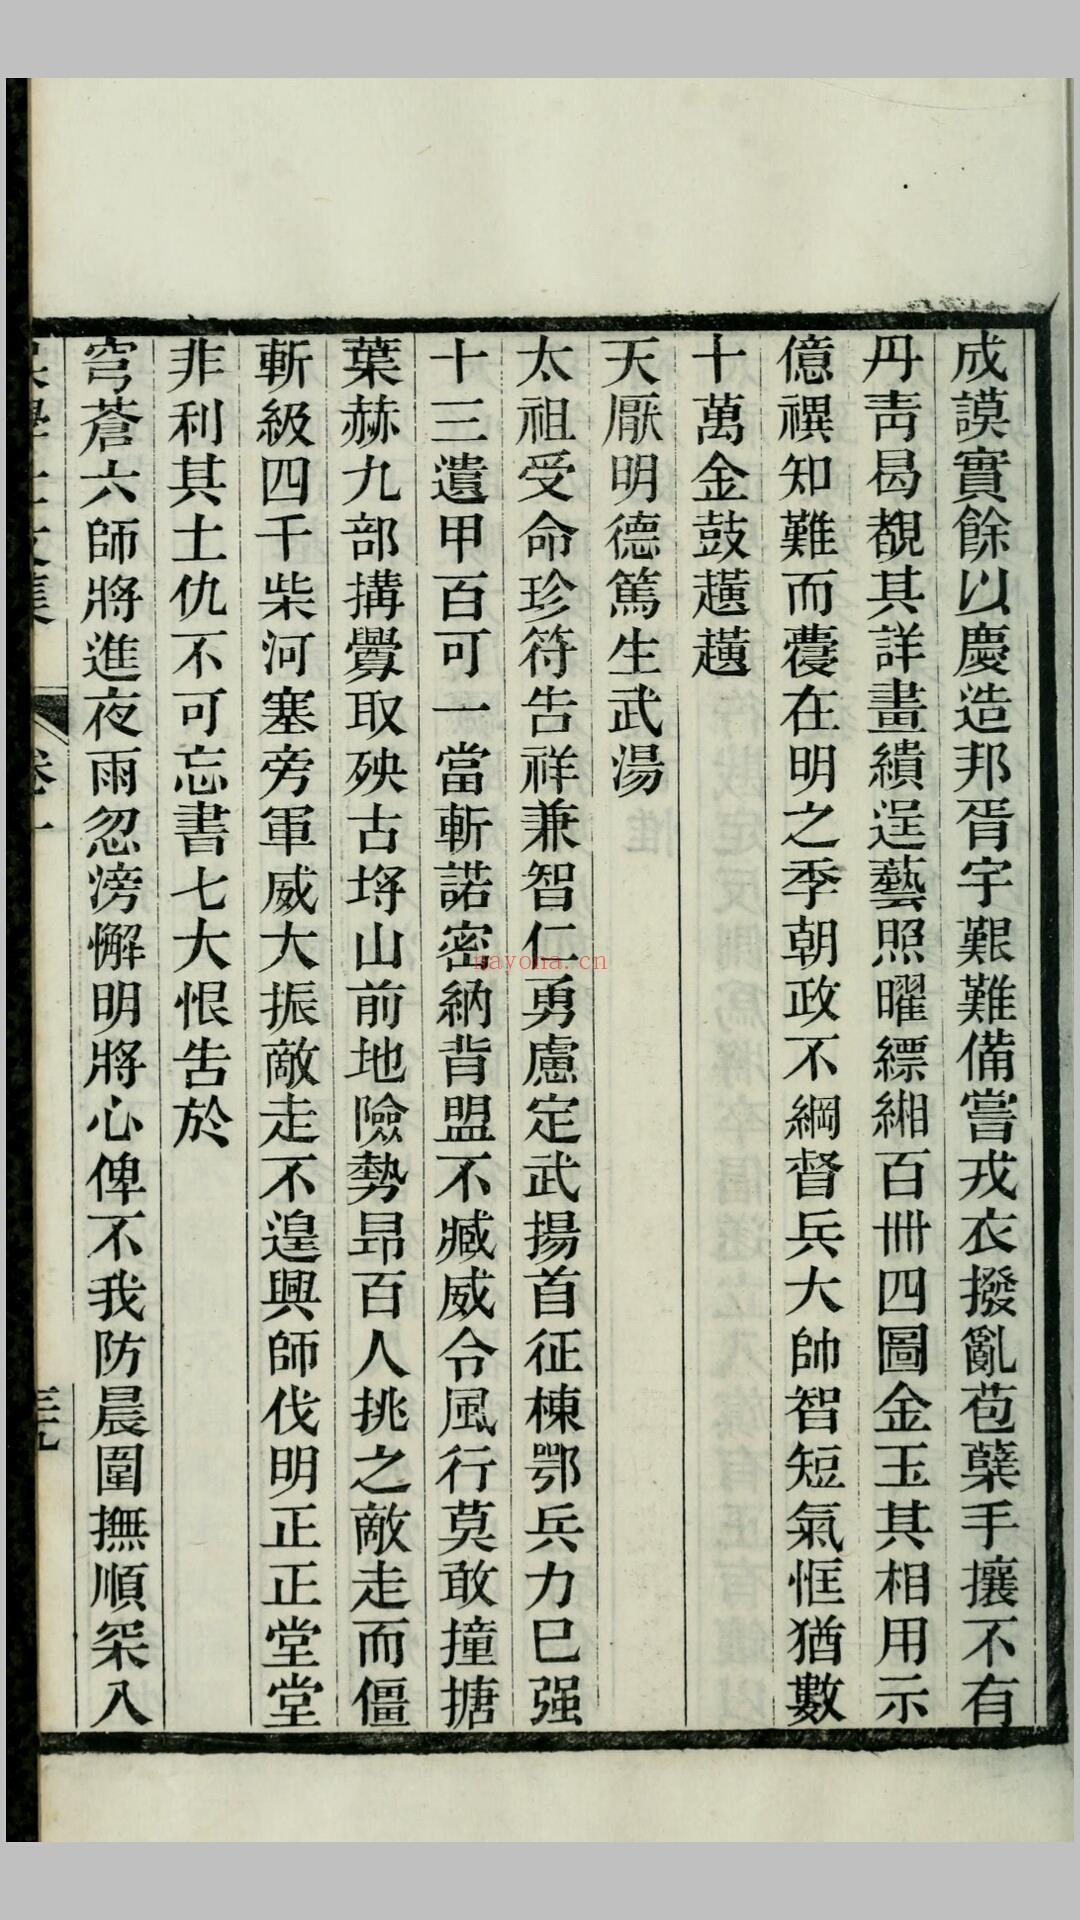 成謨實餘以慶造邦胥宇艱難備嘗戎衣撥亂苞櫱手攘不有
丹靑曷覩其詳畫繢逞藝照曜縹緗百卌四圖金玉其相用示
億禩知難而藑在明之季朝政不綱督兵大帥智短氣恇猶數
十萬金鼓趪趪
天厭明德篤生武湯
太祖受命珍符告祥兼智仁勇慮定武揚首征棟鄂兵力已强
十三遺甲百可一當斬諾密納背盟不臧威令風行莫敢撞搪
葉赫九部搆釁取殃古埒山前地險勢昂百人挑之敵走而僵
斬級四千柴河塞旁軍威大振敵走不遑興師伐明正正堂堂
非利其土仇不可忘書七大恨告於
穹蒼六師將進夜雨忽滂懈明將心俾不我防晨圍撫順罙入
卷一
三九
nayona.cn